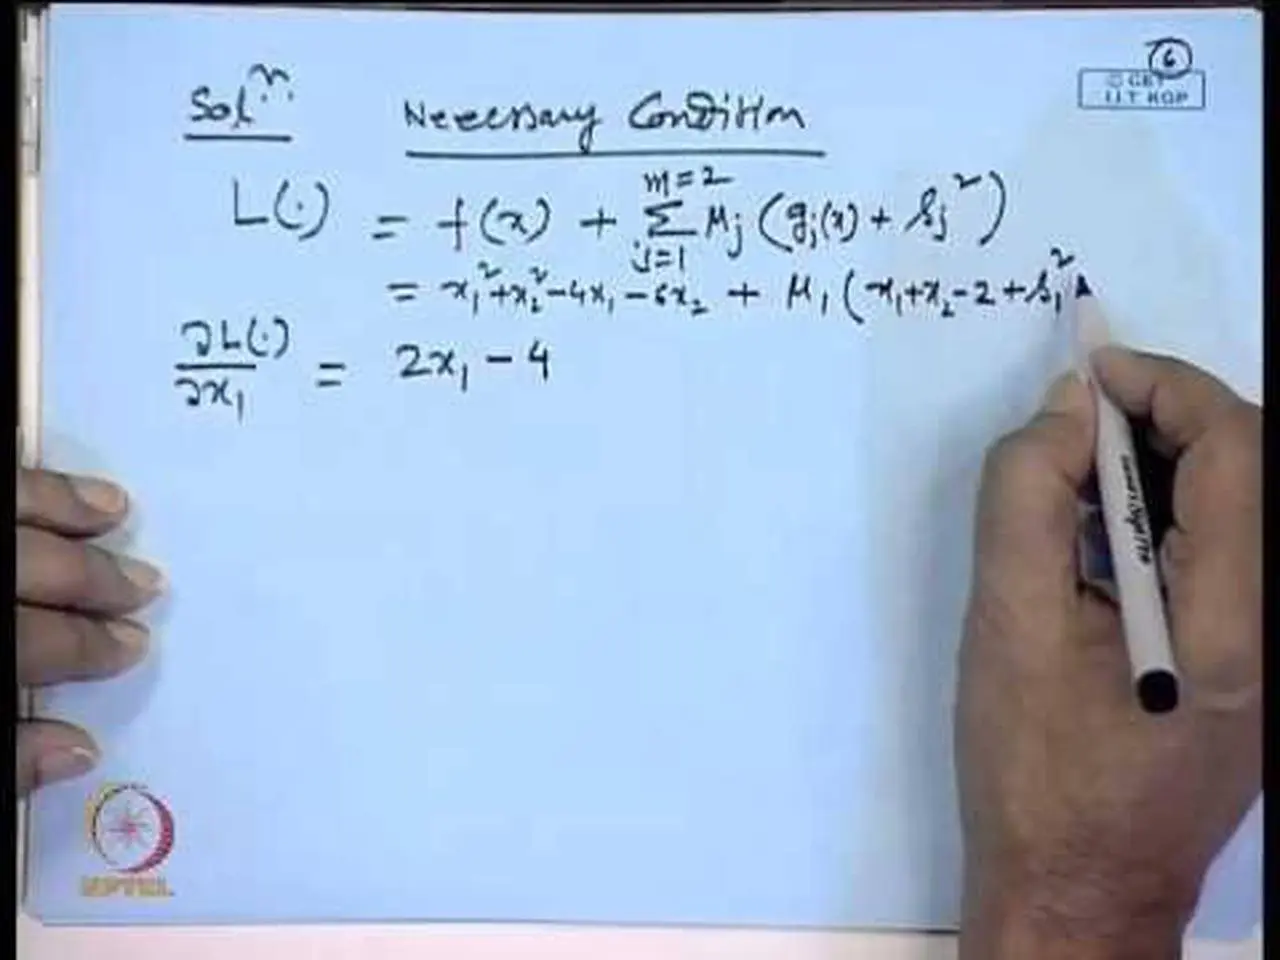 6
© CET
I.I.T KGP
Solⁿ. Necessary Condition
L(·) = f(x) + Σ_{j=1}^{m=2} μ_j (g_j(x) + s_j²)
= x₁²+x₂²-4x₁-6x₂ + μ₁(x₁+x₂-2+s₁²
∂L(·)/∂x₁ = 2x₁ - 4
NPTEL